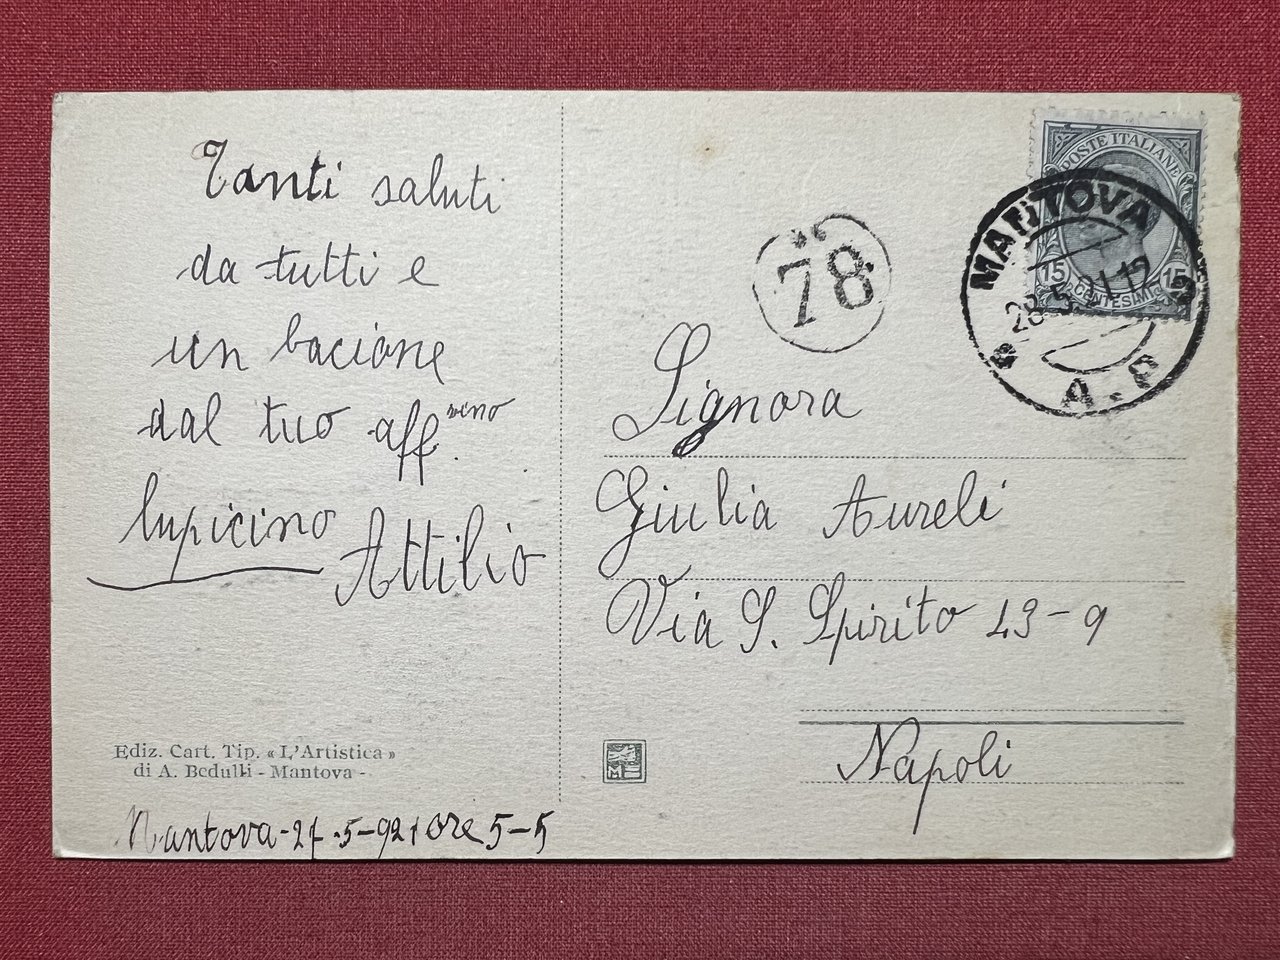 Tanti saluti
da tutti e
un bacione
dal tuo aff.mino
lupicino Attilio
Ediz. Cart. Tip. « L'Artistica »
di A. Bedulli - Mantova -
Mantova - 27-5-921 ore 5-5
POSTE ITALIANE
15 15
CENTESIMI
MANTOVA
28.5.21.12
A.P
78
Signora
Giulia Aureli
Via S. Spirito 43-9
Napoli